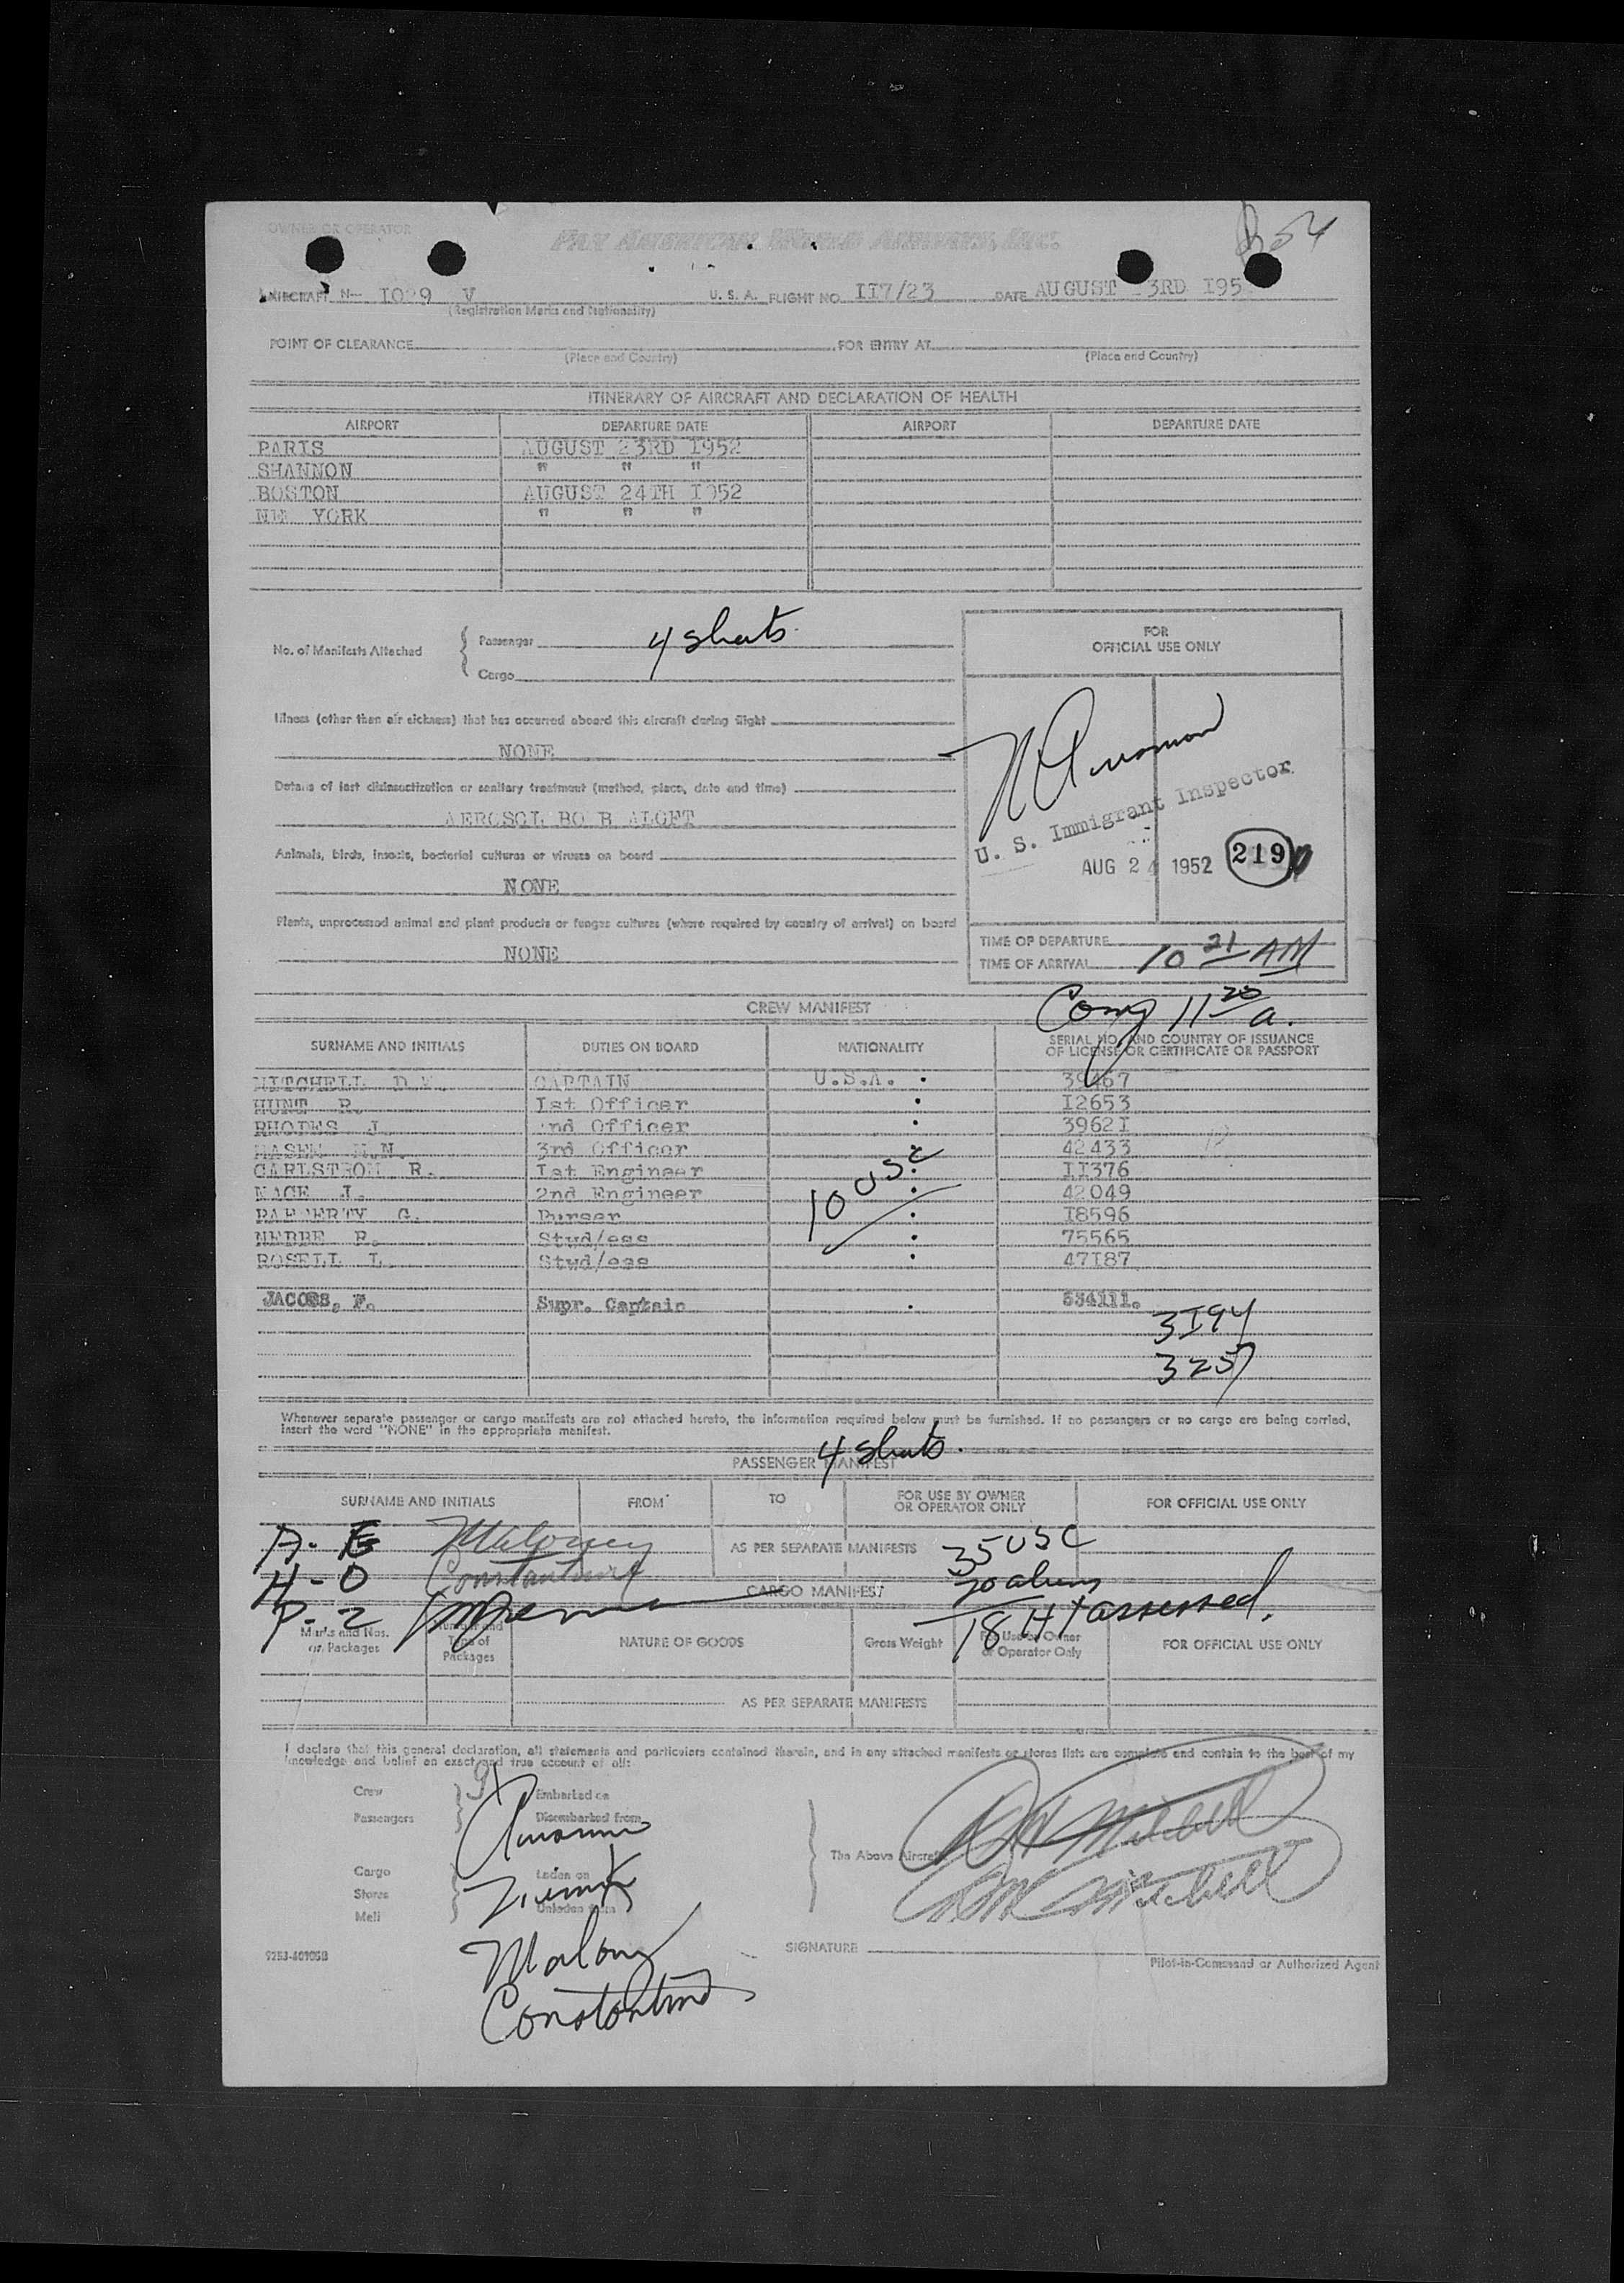 OWNER OR OPERATOR
PAN AMERICAN WORLD AIRWAYS, INC.
AIRCRAFT N- 1029 V U. S. A. FLIGHT NO. II7/23 DATE AUGUST 3RD 195
(Registration Marks and Nationality)
POINT OF CLEARANCE FOR ENTRY AT
(Place and Country) (Place and Country)
ITINERARY OF AIRCRAFT AND DECLARATION OF HEALTH
AIRPORT DEPARTURE DATE AIRPORT DEPARTURE DATE
PARIS AUGUST 23RD I952
SHANNON " " "
BOSTON AUGUST 24TH I952
NE YORK " " "
No. of Manifests Attached
Passenger 4 sheets.
Cargo
FOR
OFFICIAL USE ONLY
Illness (other than air sickness) that has occurred aboard this aircraft during flight
NONE
Details of last disinsectization or sanitary treatment (method, place, date and time)
AEROSOL BO B ALOFT
Animals, birds, insects, bacterial cultures or viruses on board
NONE
Plants, unprocessed animal and plant products or fungus cultures (where required by country of arrival) on board
NONE
U. S. Immigrant Inspector
AUG 24 1952 219
TIME OF DEPARTURE
TIME OF ARRIVAL 10 21 AM
CREW MANIFEST
11 20 a.
SURNAME AND INITIALS DUTIES ON BOARD NATIONALITY SERIAL NO. AND COUNTRY OF ISSUANCE
OF LICENSE OR CERTIFICATE OR PASSPORT
MITCHELL D.M. CAPTAIN U.S.A. 39467
HUNT R. Ist Officer I2653
RHODES J. 2nd Officer 3962I
MASEN 3rd Officer 42433
CARLSTROM R. Ist Engineer II376
NAGE J. 2nd Engineer 42049
G. Purser I8596
Stwd/ess 75565
ROSELL L. Stwd/ess 47I87
10 USC
JACOBS, F. Supr. Captain 334111.
3I94
3257
Whenever separate passenger or cargo manifests are not attached hereto, the information required below must be furnished. If no passengers or no cargo are being carried,
insert the word "NONE" in the appropriate manifest.
4 sheets.
PASSENGER MANIFEST
SURNAME AND INITIALS FROM TO FOR USE BY OWNER
OR OPERATOR ONLY FOR OFFICIAL USE ONLY
A- E Maloney AS PER SEPARATE MANIFESTS 35 USC
H-O Constantine 20 aliens
CARGO MANIFEST
P-Z 18 HT assessed.
Marks and Nos.
on Packages
Number and
Type of
Packages
NATURE OF GOODS Gross Weight For Use by Owner
or Operator Only FOR OFFICIAL USE ONLY
AS PER SEPARATE MANIFESTS
I declare that this general declaration, all statements and particulars contained therein, and in any attached manifests or stores lists are complete and contain to the best of my
knowledge and belief an exact and true account of all:
Crew Embarked on
Passengers Disembarked from
The Above Aircraft
Cargo Laden on
Stores
Mail Unladen from
DM Mitchell
DM Mitchell
Malony
Constantine
9253-40105B SIGNATURE
Pilot-in-Command or Authorized Agent